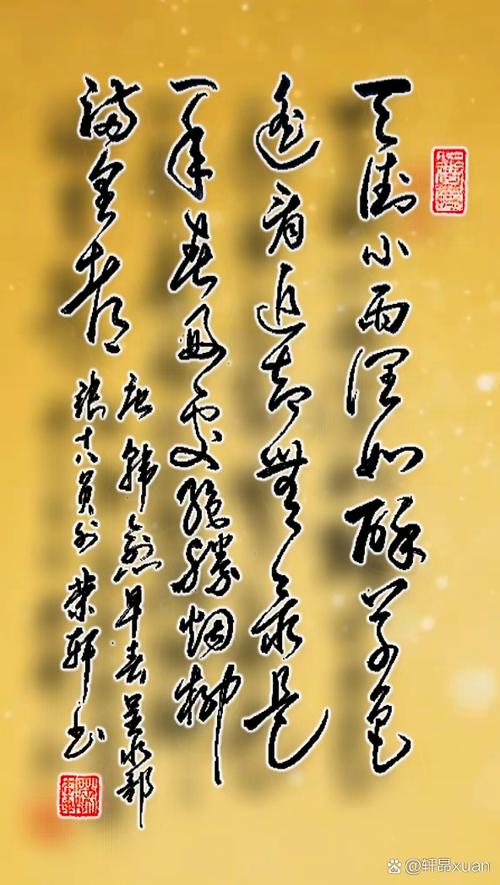 天街小雨润如酥草色
遥看近却無最是
一年春好处绝胜烟柳
满皇都
唐韓愈早春呈水部
张十八员外荣轩书
@轩昂xuan